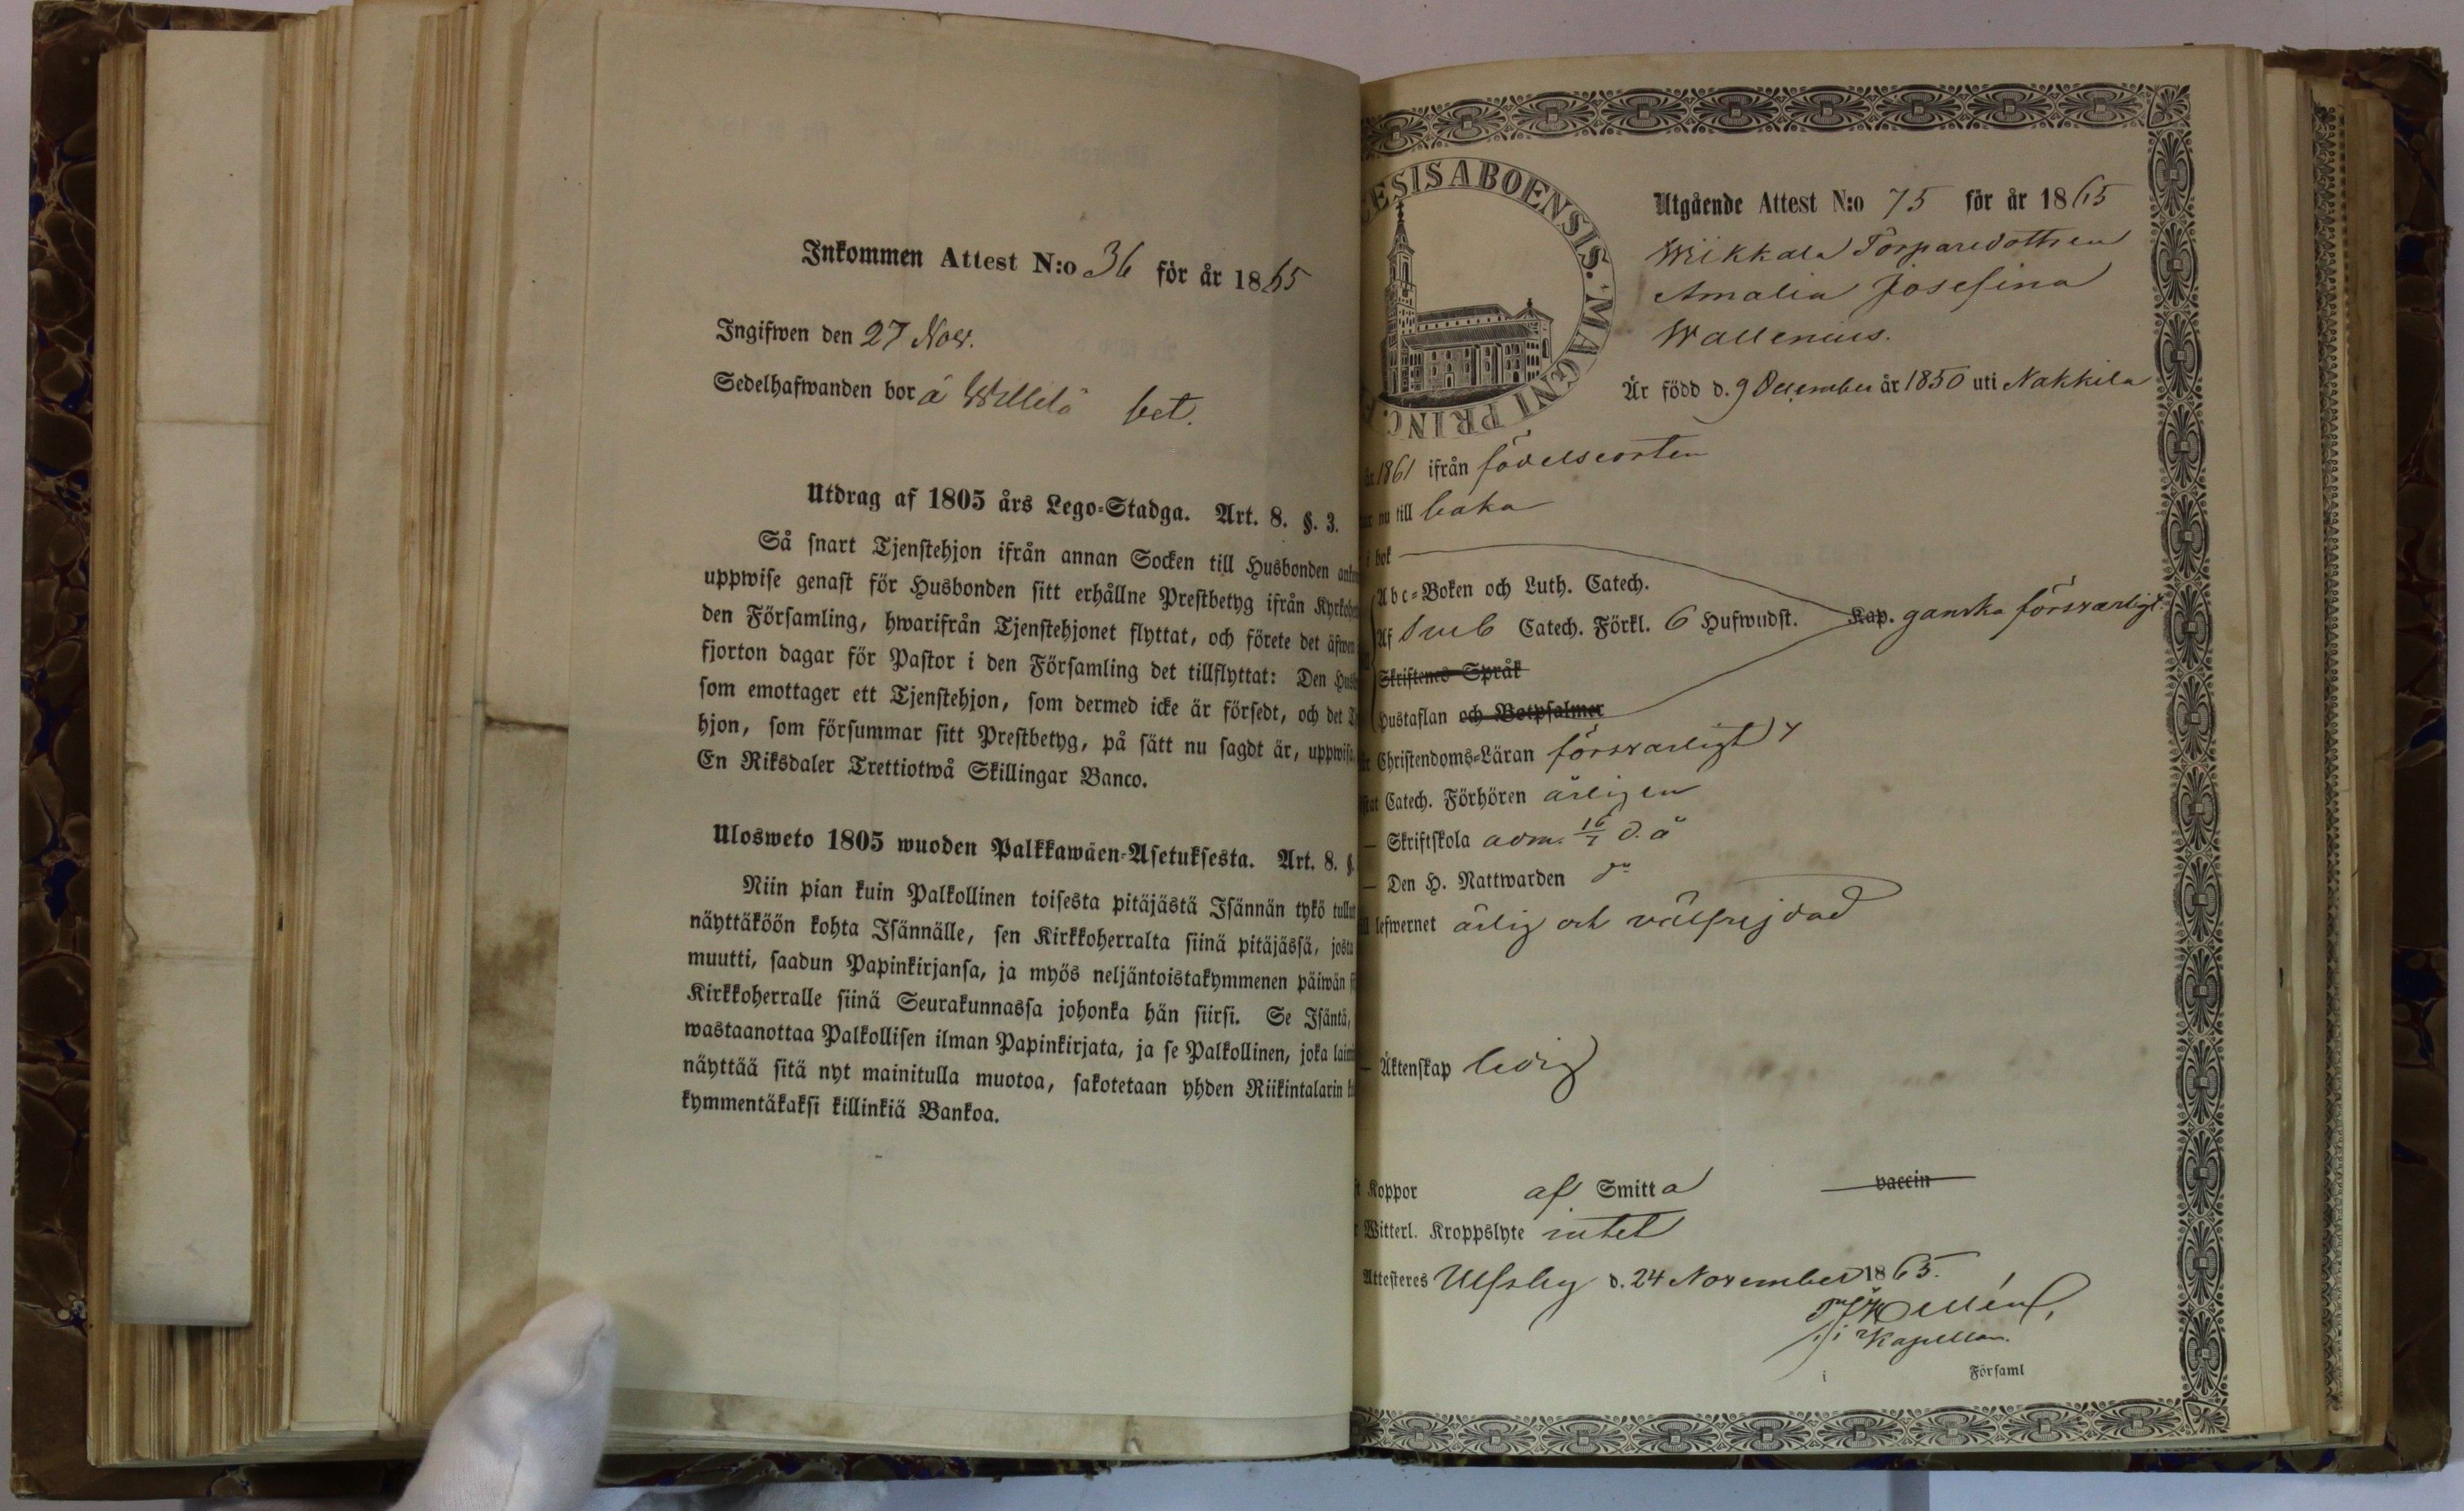 Inkommen Attest N:o 36 för år 1865
Ingifwen den 27 Nov.
Sedelhafwanden bor å Willilä bet.
Utdrag af 1805 års Lego-Stadga. Art. 8. §. 3.
Så snart Tjenstehjon ifrån annan Socken till Husbonden
uppwise genast för Husbonden sitt erhållne Prestbetyg ifrån
den Församling, hwarifrån Tjenstehjonet flyttat, och förete det äfwen
fjorton dagar för Pastor i den Församling det tillflyttat: Den
som emottager ett Tjenstehjon, som dermed icke är försedt, och det
hjon, som försummar sitt Prestbetyg, på sätt nu sagdt är, uppwisa,
En Riksdaler Trettiotwå Skillingar Banco.
Ulosweto 1805 wuoden Palkkawäen-Asetuksesta. Art. 8. §.
Niin pian kuin Palkollinen toisesta pitäjästä Isännän tykö
näyttäköön kohta Isännälle, sen Kirkkoherralta siinä pitäjässä, josta
muutti, saadun Papinkirjansa, ja myös neljäntoistakymmenen päiwän
Kirkkoherralle siinä Seurakunnassa johonka hän siirsi. Se Isäntä,
wastaanottaa Palkollisen ilman Papinkirjata, ja se Palkollinen, joka
näyttää sitä nyt mainitulla muotoa, sakotetaan yhden Riikintalarin
kymmentäkaksi killinkiä Bankoa.
ESIS ABOENSIS. MAGNI PRINC.
Utgående Attest N:o 75 för år 1865
Wikkala Torparedottren
Amalia Josefina
Wallenius.
Är född d. 9 December år 1850 uti Nakkila
1861 ifrån födelseorten
nu till baka
i bok
Abc-Boken och Luth. Catech.
Af Sveb Catech. Förkl. 6 Hufwudst. Kap. ganska försvarligt
Skriftenes Språk
Hustaflan och Botpsalmer
Christendoms-Läran försvarligt
Catech. Förhören årligen
Skriftskola adm. 16/7 d. å
Den H. Nattwarden do
lefwernet ärlig och välfrejdad
Äktenskap ledig
Koppor af Smitta vaccin
Witterl. Kroppslyte intet
Attesteres Ulfsby d. 24 November 1865.
Kapellan.
i Församl